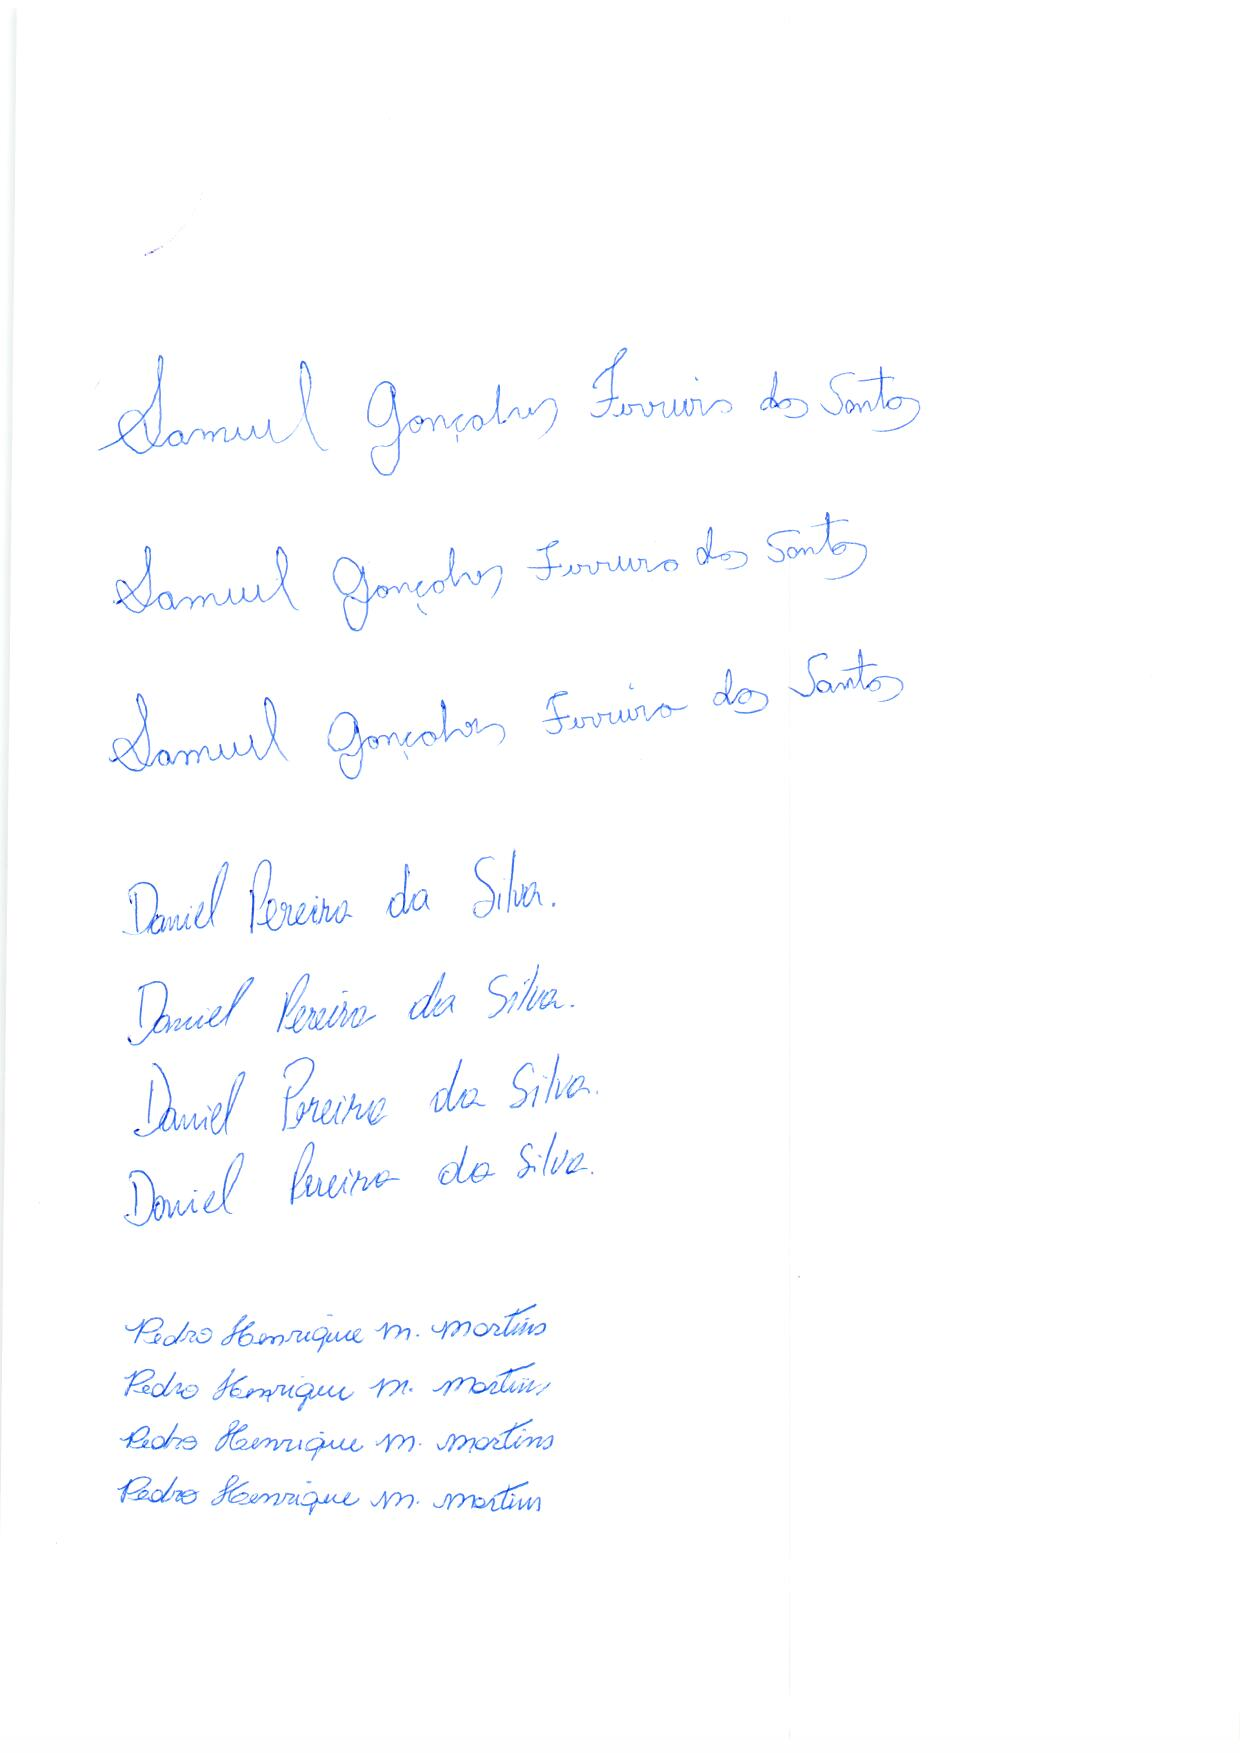 Samuel Gonçalves Ferreira dos Santos
Samuel Gonçalves Ferreira dos Santos
Samuel Gonçalves Ferreira dos Santos
Daniel Pereira da Silva.
Daniel Pereira da Silva.
Daniel Pereira da Silva.
Daniel Pereira da Silva.
Pedro Henrique M. Martins
Pedro Henrique M. Martins
Pedro Henrique M. Martins
Pedro Henrique M. Martins